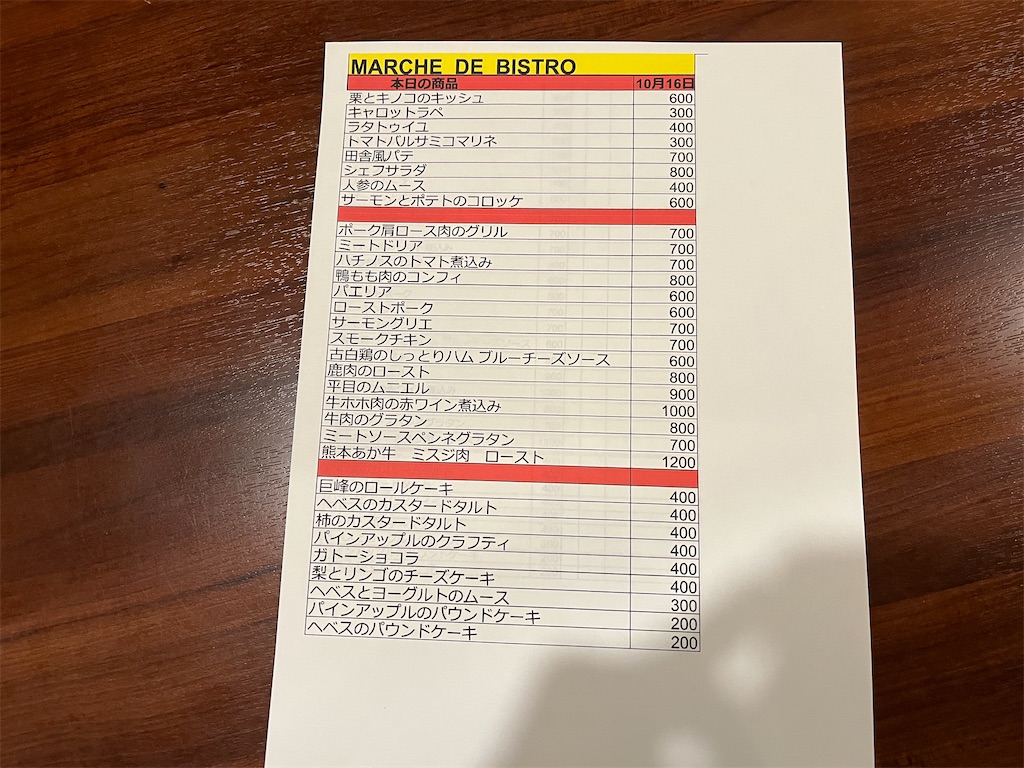 MARCHE DE BISTRO
本日の商品 10月16日
栗とキノコのキッシュ 600
キャロットラペ 300
ラタトゥイユ 400
トマトバルサミコマリネ 300
田舎風パテ 700
シェフサラダ 800
人参のムース 400
サーモンとポテトのコロッケ 600
ポーク肩ロース肉のグリル 700
ミートドリア 700
ハチノスのトマト煮込み 700
鴨もも肉のコンフィ 800
パエリア 600
ローストポーク 600
サーモングリエ 700
スモークチキン 700
古白鶏のしっとりハム ブルーチーズソース 600
鹿肉のロースト 800
平目のムニエル 900
牛ホホ肉の赤ワイン煮込み 1000
牛肉のグラタン 800
ミートソースペンネグラタン 700
熊本あか牛 ミスジ肉 ロースト 1200
巨峰のロールケーキ 400
ヘベスのカスタードタルト 400
柿のカスタードタルト 400
パインアップルのクラフティ 400
ガトーショコラ 400
梨とリンゴのチーズケーキ 400
ヘベスとヨーグルトのムース 300
パインアップルのパウンドケーキ 200
ヘベスのパウンドケーキ 200